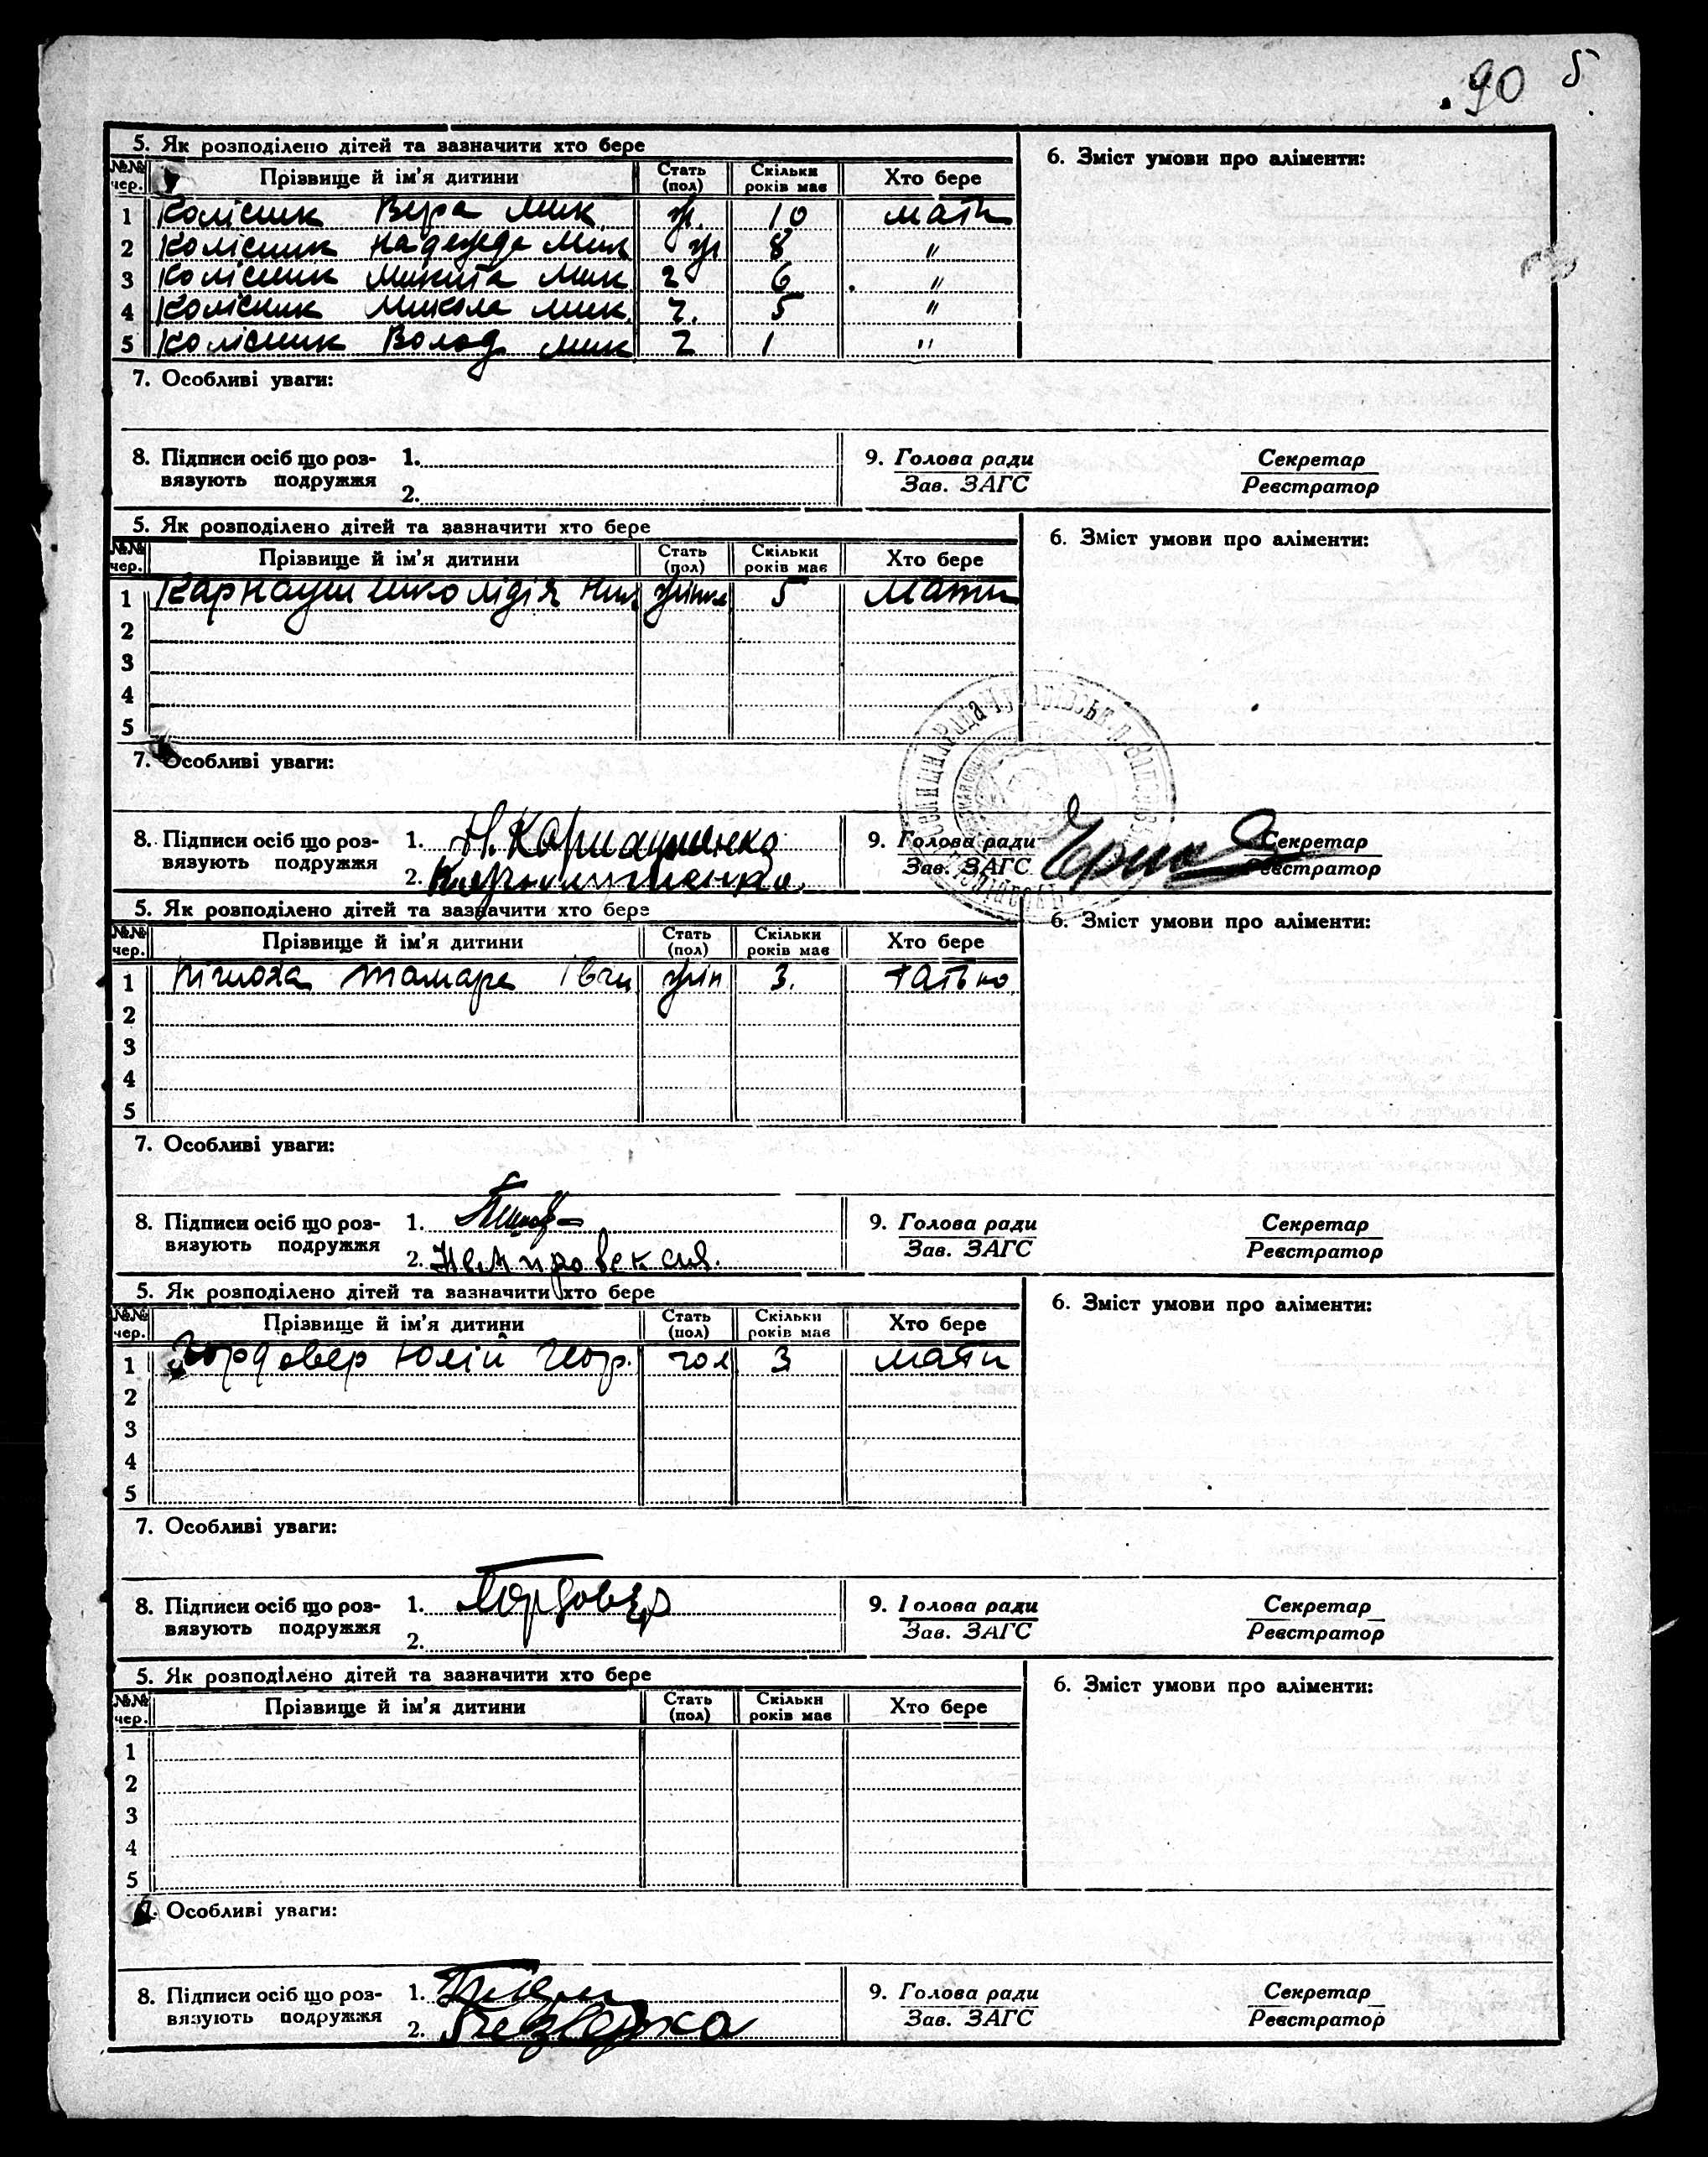 90 5
5. Як розподілено дітей та зазначити хто бере
6. Зміст умови про аліменти:
№№ чер. Прізвище й ім'я дитини Стать (пол) Скільки років має Хто бере
1 Колісник Вера Мик. ж. 10 мати
2 Колісник Надежда Мик ж 8 "
3 Колісник Микита Мик. ч 6 "
4 Колісник Микола Мик. ч. 5 "
5 Колісник Волод. Мик ч 1 "
7. Особливі уваги:
8. Підписи осіб що роз- 1. 9. Голова ради Секретар
вязують подружжя 2. Зав. ЗАГС Реєстратор
5. Як розподілено дітей та зазначити хто бере
6. Зміст умови про аліменти:
№№ чер. Прізвище й ім'я дитини Стать (пол) Скільки років має Хто бере
1 Карнаушенко Лідія Ник жінк 5 мати
2
3
4
5
7. Особливі уваги:
8. Підписи осіб що роз- 1. Н. Карнаушенко 9. Голова ради Секретар
вязують подружжя 2. Карнаушенко. Зав. ЗАГС Реєстратор
5. Як розподілено дітей та зазначити хто бере
6. Зміст умови про аліменти:
№№ чер. Прізвище й ім'я дитини Стать (пол) Скільки років має Хто бере
1 Тамара Іван жін 3. татько
2
3
4
5
7. Особливі уваги:
8. Підписи осіб що роз- 1. 9. Голова ради Секретар
вязують подружжя 2. Зав. ЗАГС Реєстратор
5. Як розподілено дітей та зазначити хто бере
6. Зміст умови про аліменти:
№№ чер. Прізвище й ім'я дитини Стать (пол) Скільки років має Хто бере
1 Гордовер Юлій Геор. чол 3 мати
2
3
4
5
7. Особливі уваги:
8. Підписи осіб що роз- 1. Гордовер 9. Голова ради Секретар
вязують подружжя 2. Зав. ЗАГС Реєстратор
5. Як розподілено дітей та зазначити хто бере
6. Зміст умови про аліменти:
№№ чер. Прізвище й ім'я дитини Стать (пол) Скільки років має Хто бере
1
2
3
4
5
7. Особливі уваги:
8. Підписи осіб що роз- 1. 9. Голова ради Секретар
вязують подружжя 2. Зав. ЗАГС Реєстратор